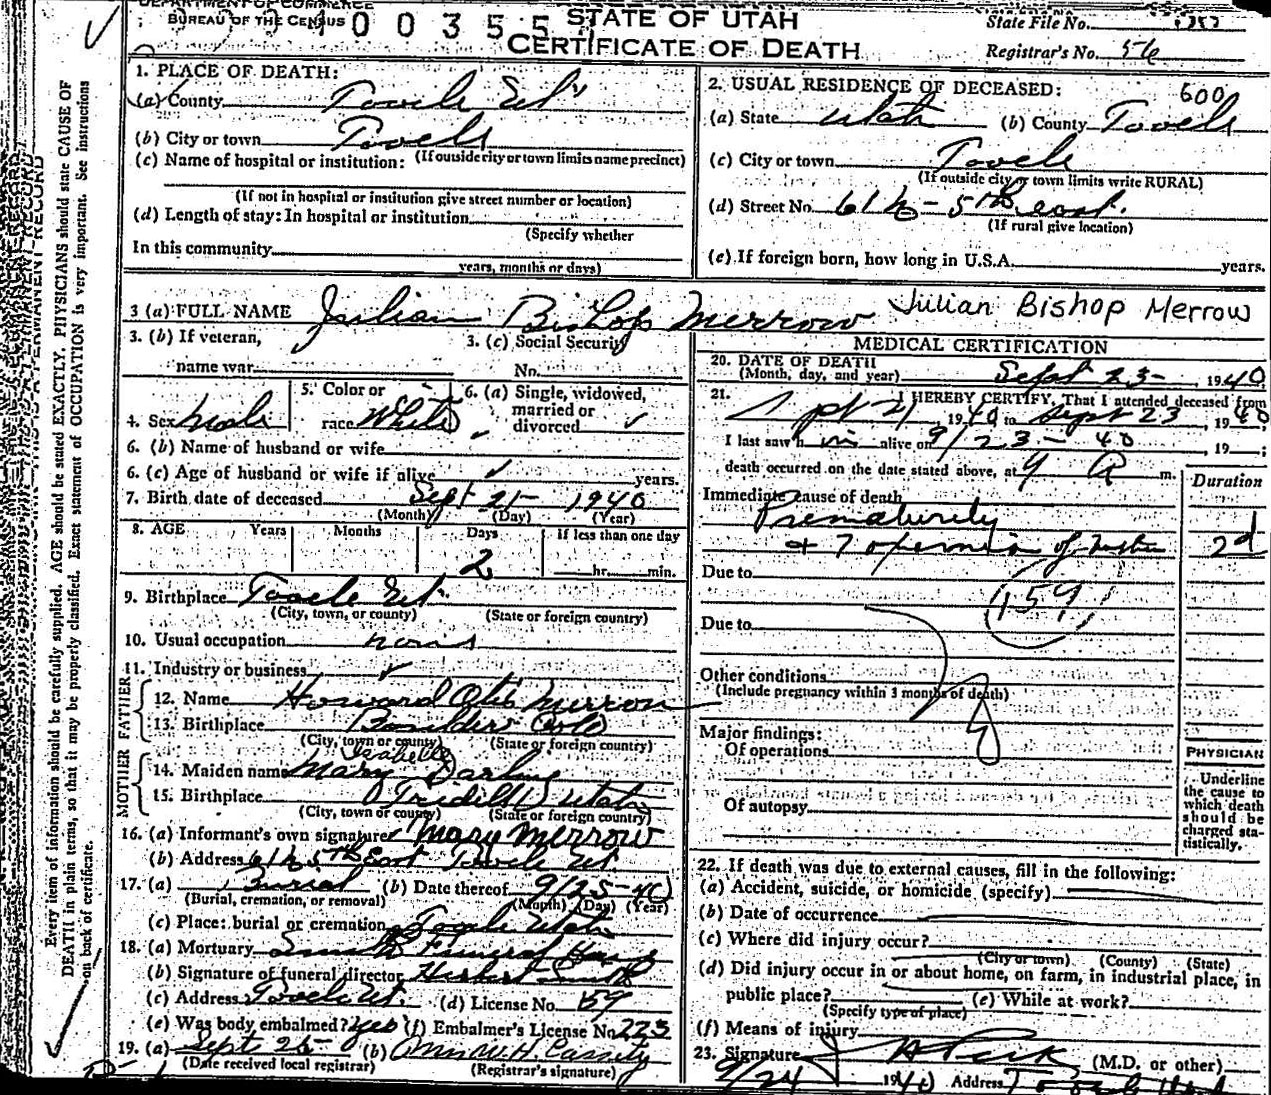 DEPARTMENT OF COMMERCE
BUREAU OF THE CENSUS
0 0 3 5 5
STATE OF UTAH
CERTIFICATE OF DEATH
State File No.
Registrar's No. 56
Every item of information should be carefully supplied. AGE should be stated EXACTLY. PHYSICIANS should state CAUSE OF
DEATH in plain terms, so that it may be properly classified. Exact statement of OCCUPATION is very important. See instructions
on back of certificate.
1. PLACE OF DEATH:
(a) County Tooele Ut
(b) City or town Tooele
(c) Name of hospital or institution: (If outside city or town limits name precinct)
(If not in hospital or institution give street number or location)
(d) Length of stay: In hospital or institution
(Specify whether
In this community
years, months or days)
2. USUAL RESIDENCE OF DECEASED: 600
(a) State Utah (b) County Tooele
(c) City or town Tooele
(If outside city or town limits write RURAL)
(d) Street No. 61 - 5th East.
(If rural give location)
(e) If foreign born, how long in U.S.A. years.
3 (a) FULL NAME Julian Bishop Merrow Julian Bishop Merrow
3. (b) If veteran,
name war
3. (c) Social Security
No.
4. Sex Male
5. Color or
race White
6. (a) Single, widowed,
married or
divorced
6. (b) Name of husband or wife
6. (c) Age of husband or wife if alive years.
7. Birth date of deceased Sept 21 1940
(Month) (Day) (Year)
8. AGE Years Months Days If less than one day
2 hr. min.
9. Birthplace Tooele Ut.
(City, town, or county) (State or foreign country)
10. Usual occupation none
11. Industry or business
FATHER
12. Name Howard Otis Merrow
13. Birthplace Boulder Colo
(City, town or county) (State or foreign country)
MOTHER
14. Maiden name Mary Isabelle Darling
15. Birthplace Tridell Utah
(City, town or county) (State or foreign country)
16. (a) Informant's own signature Mary Merrow
(b) Address 61 5th East Tooele Ut.
17. (a) Burial (b) Date thereof 9/25-40
(Burial, cremation, or removal) (Month) (Day) (Year)
(c) Place: burial or cremation Tooele Utah
18. (a) Mortuary Smith Funeral Home
(b) Signature of funeral director Herbert Smith
(c) Address Tooele Ut. (d) License No. 159
(e) Was body embalmed? Yes (f) Embalmer's License No. 223
19. (a) Sept 26 (b) W.H. Cassity
(Date received local registrar) (Registrar's signature)
MEDICAL CERTIFICATION
20. DATE OF DEATH
(Month, day, and year) Sept 23- , 1940
21. I HEREBY CERTIFY, That I attended deceased from
Sept 21 1940 to Sept 23, 1940
I last saw him alive on 9/23-40, 19 ;
death occurred on the date stated above, at 4 A m.
Duration
Immediate cause of death
Prematurity
2d
Due to
159
Due to
Other conditions
(Include pregnancy within 3 months of death)
Major findings:
Of operations
Of autopsy
PHYSICIAN
Underline
the cause to
which death
should be
charged sta-
tistically.
22. If death was due to external causes, fill in the following:
(a) Accident, suicide, or homicide (specify)
(b) Date of occurrence
(c) Where did injury occur?
(City or town) (County) (State)
(d) Did injury occur in or about home, on farm, in industrial place, in
public place? (e) While at work?
(Specify type of place)
(f) Means of injury
23. Signature (M.D. or other)
9/24 1940 Address Tooele Utah